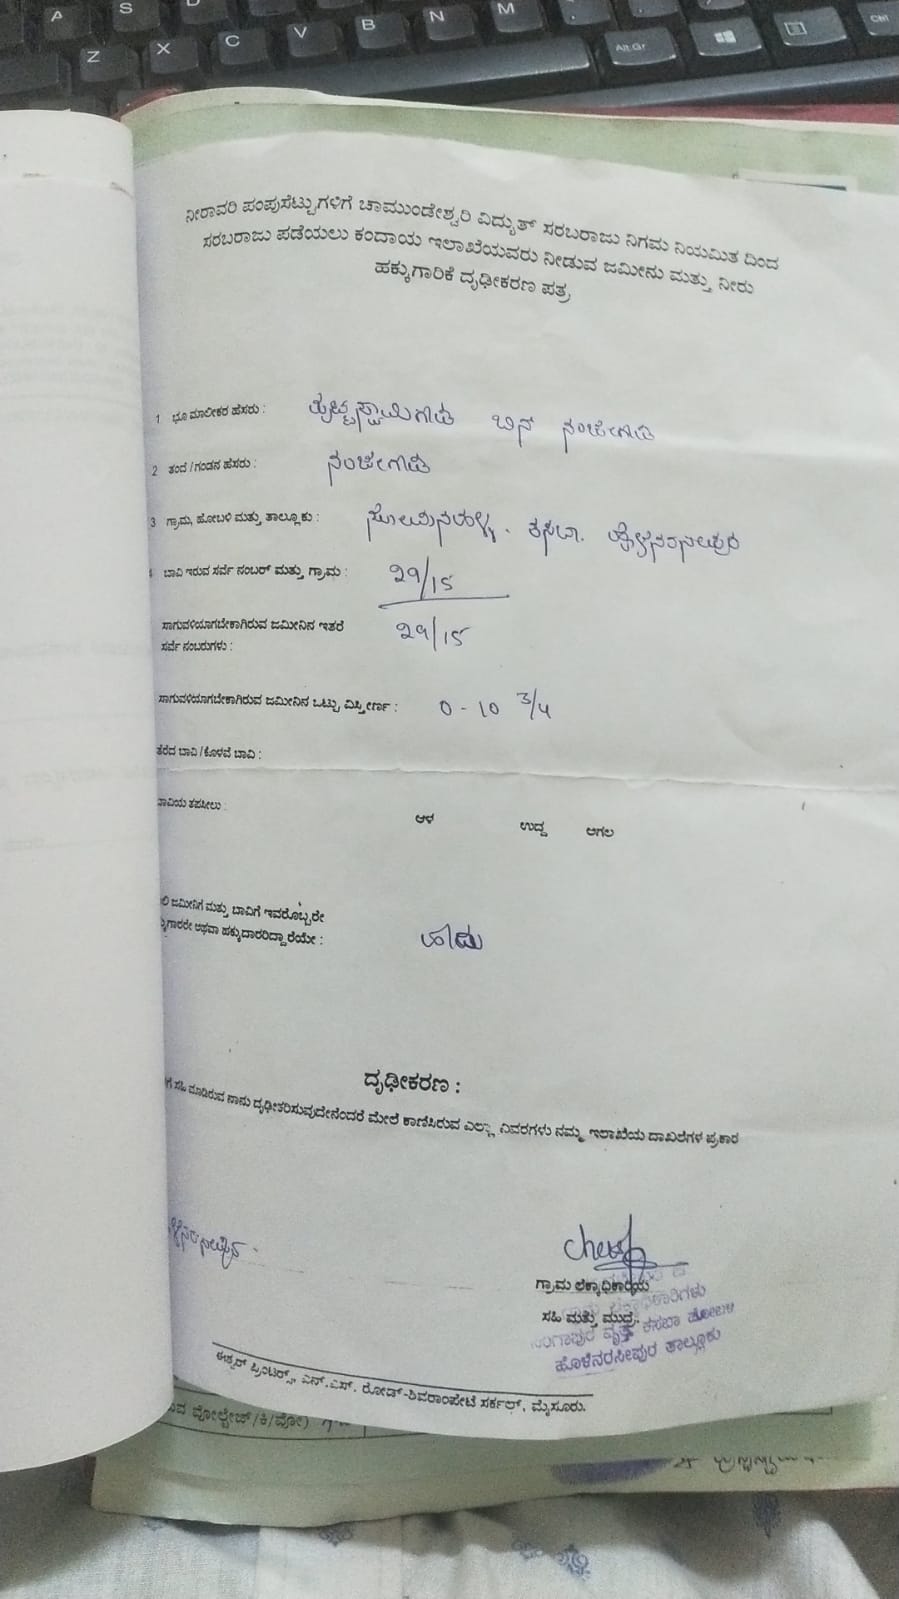 A S D Z X C V B N M Alt Gr Ctrl
ನೀರಾವರಿ ಪಂಪುಸೆಟ್ಟುಗಳಿಗೆ ಚಾಮುಂಡೇಶ್ವರಿ ವಿದ್ಯುತ್ ಸರಬರಾಜು ನಿಗಮ ನಿಯಮಿತ ದಿಂದ
ಸರಬರಾಜು ಪಡೆಯಲು ಕಂದಾಯ ಇಲಾಖೆಯವರು ನೀಡುವ ಜಮೀನು ಮತ್ತು ನೀರು
ಹಕ್ಕುಗಾರಿಕೆ ದೃಢೀಕರಣ ಪತ್ರ
1 ಭೂ ಮಾಲೀಕರ ಹೆಸರು : ಪುಟ್ಟಸ್ವಾಮಿಗೌಡ ಬಿನ್ ನಂಜೇಗೌಡ
2 ತಂದೆ / ಗಂಡನ ಹೆಸರು : ನಂಜೇಗೌಡ
3 ಗ್ರಾಮ, ಹೋಬಳಿ ಮತ್ತು ತಾಲ್ಲೂಕು : ಕಸಬಾ.
ಬಾವಿ ಇರುವ ಸರ್ವೆ ನಂಬರ್ ಮತ್ತು ಗ್ರಾಮ : 29/15
ಸಾಗುವಳಿಯಾಗಬೇಕಾಗಿರುವ ಜಮೀನಿನ ಇತರೆ 29/15
ಸರ್ವೆ ನಂಬರುಗಳು :
ಸಾಗುವಳಿಯಾಗಬೇಕಾಗಿರುವ ಜಮೀನಿನ ಒಟ್ಟು ವಿಸ್ತೀರ್ಣ : 0-10 3/4
ತೆರೆದ ಬಾವಿ / ಕೊಳವೆ ಬಾವಿ :
ಬಾವಿಯ ತಪಸೀಲು :
ಆಳ ಉದ್ದ ಅಗಲ
ಜಮೀನಿಗೆ ಮತ್ತು ಬಾವಿಗೆ ಇವರೊಬ್ಬರೇ
ಅಥವಾ ಹಕ್ಕುದಾರರಿದ್ದಾರೆಯೇ : ಹೌದು
ದೃಢೀಕರಣ :
ಸಹಿ ಮಾಡಿರುವ ನಾನು ದೃಢೀಕರಿಸುವುದೇನೆಂದರೆ ಮೇಲೆ ಕಾಣಿಸಿರುವ ಎಲ್ಲಾ ವಿವರಗಳು ನಮ್ಮ ಇಲಾಖೆಯ ದಾಖಲೆಗಳ ಪ್ರಕಾರ
ಗ್ರಾಮ ಲೆಕ್ಕಾಧಿಕಾರಿಯ
ಸಹಿ ಮತ್ತು ಮುದ್ರೆ.
ವೃತ್ತ ಕಸಬಾ ಹೋಬಳಿ
ಹೊಳೆನರಸೀಪುರ ತಾಲ್ಲೂಕು
ಈಶ್ವರ್ ಪ್ರಿಂಟರ್ಸ್, ಎನ್.ಎಸ್. ರೋಡ್-ಶಿವರಾಂಪೇಟೆ ಸರ್ಕಲ್, ಮೈಸೂರು.
ವೋಲ್ಟೇಜ್/ಕಿ/ವೋ)